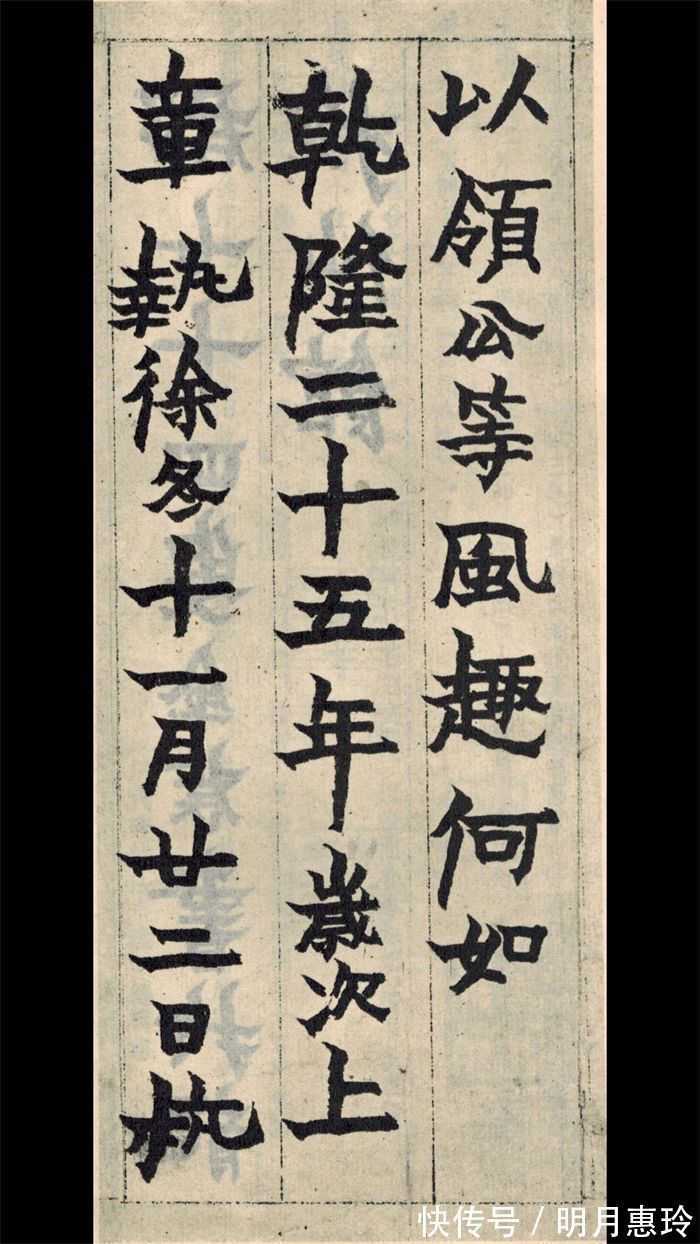 以領公等風趣何如
乾隆二十五年歲次上
章執徐冬十一月廿二日杭
快传号 / 明月惠玲